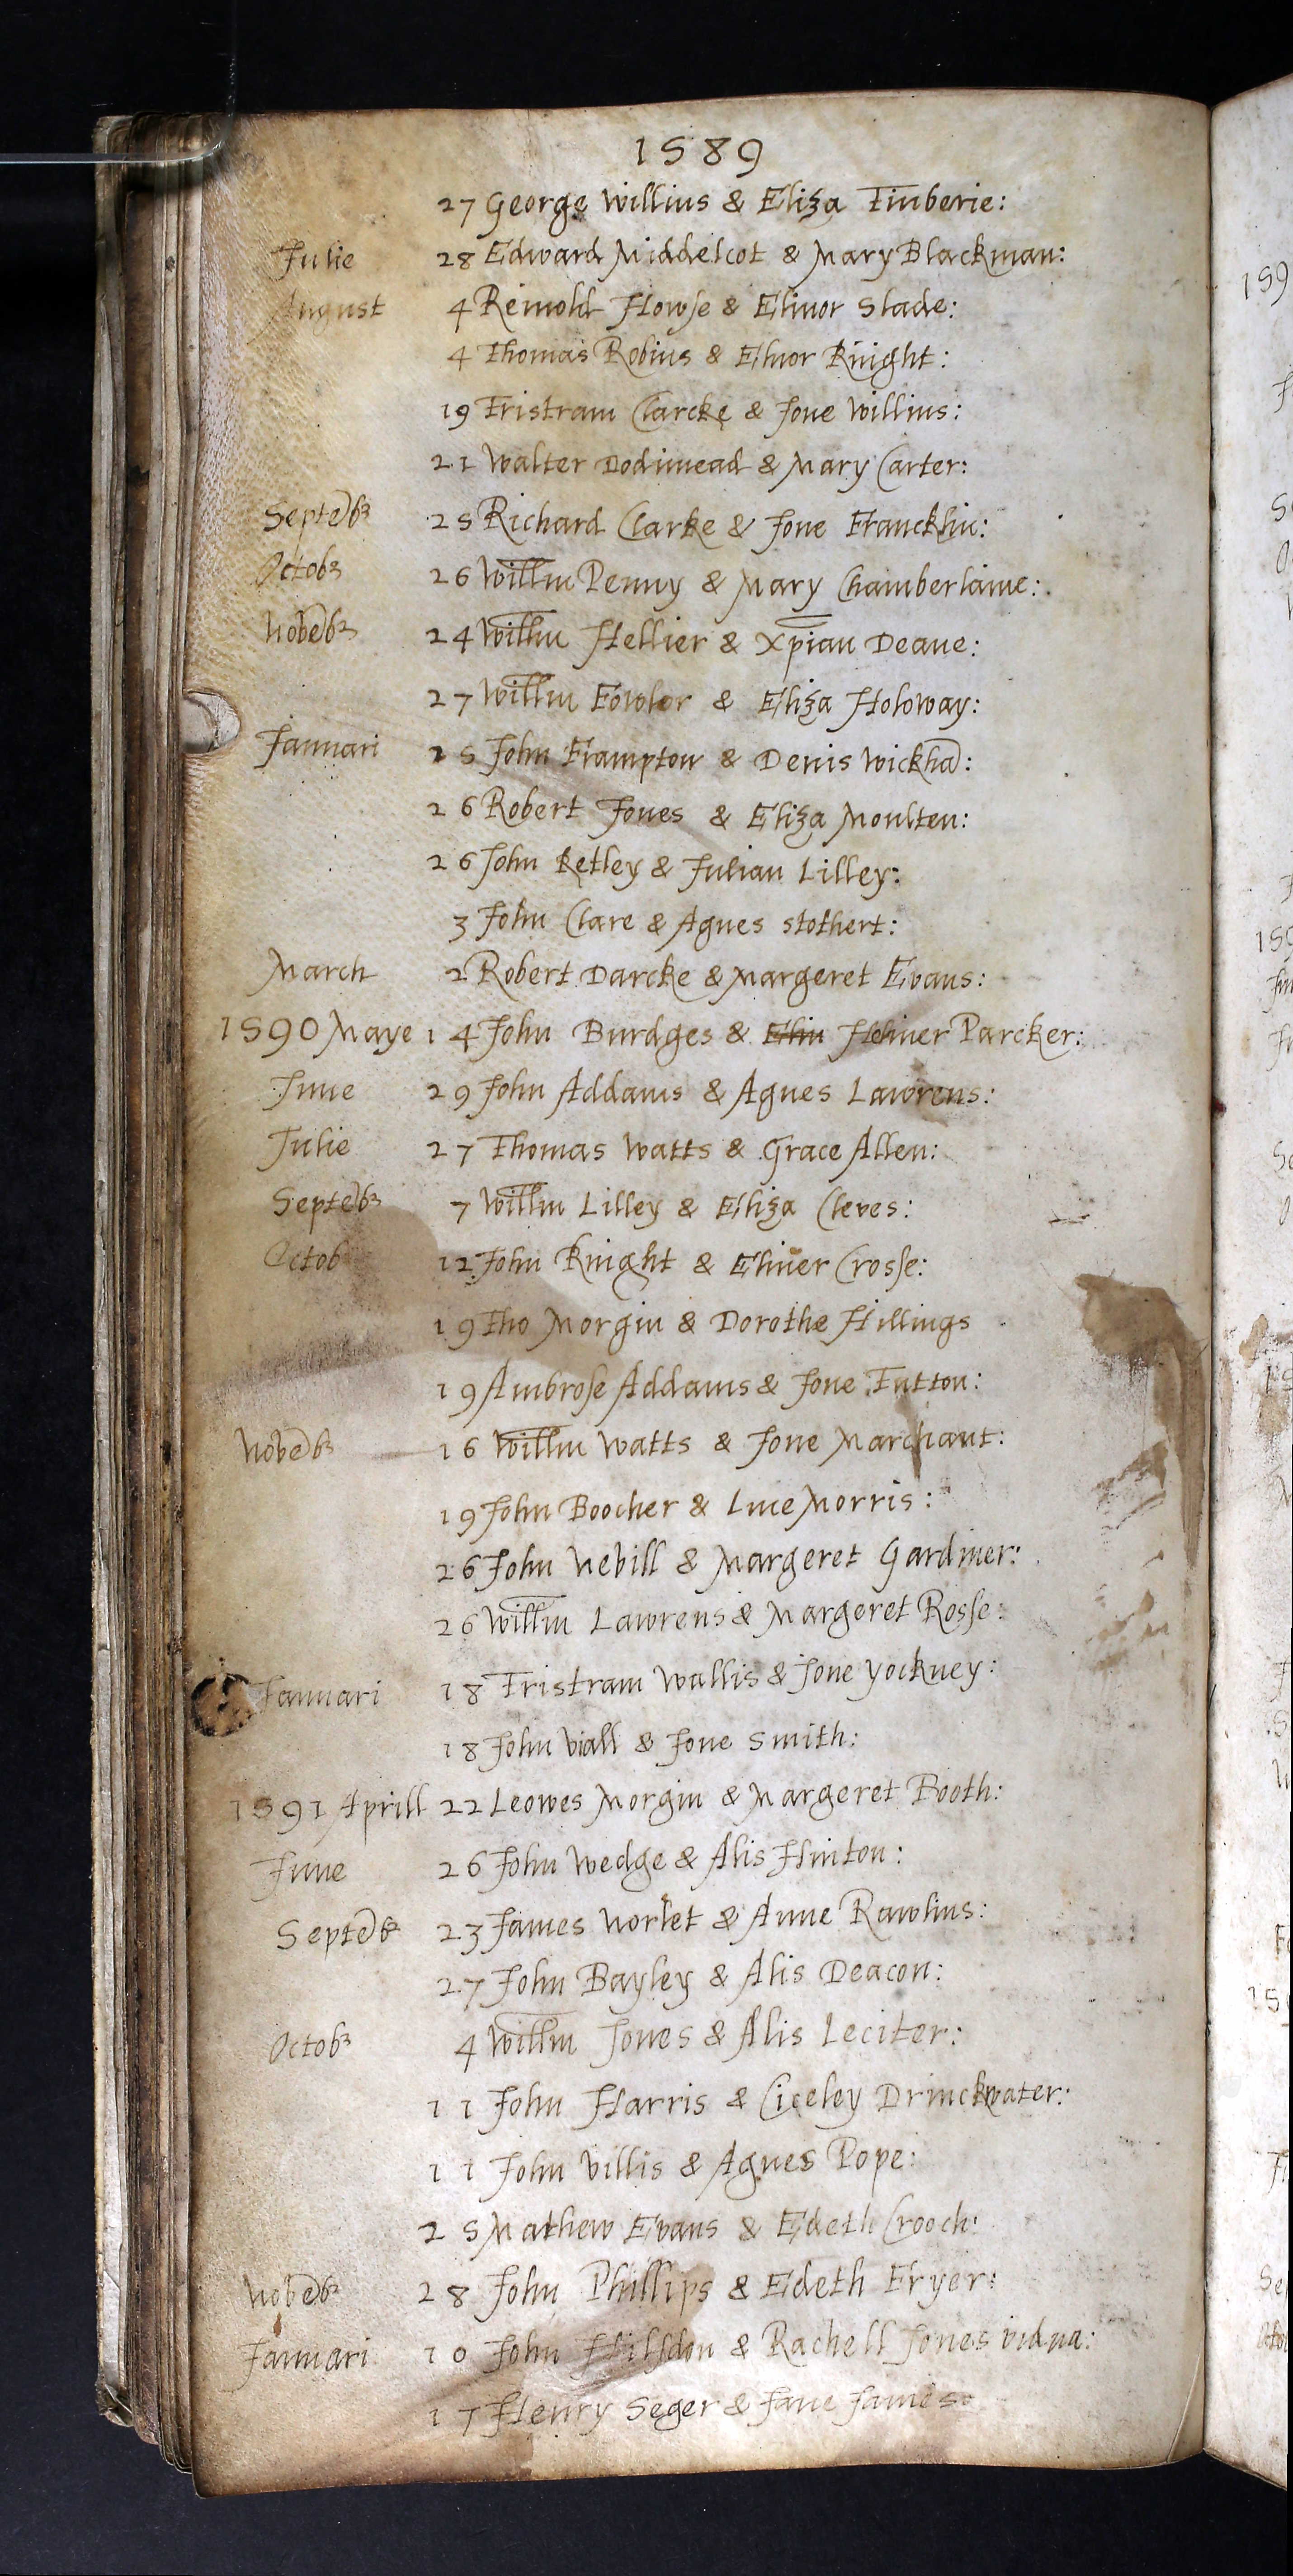 1589
27 George Willins & Eliza Timberie:
Julie 28 Edward Middelcot & Mary Blackman:
August 4 Reinold Howse & Elinor Slade:
4 Thomas Robins & Elinor Knight:
19 Tristram Clarcke & Jone Willins:
21 Walter Dodimead & Mary Carter:
Septeb 25 Richard Clarke & Jone Francklin:
Octob 26 Willm Penny & Mary Chamberlaine:
Nobeb 24 Willm Hellier & Xpian Deane:
27 Willm Fowlor & Eliza Holoway:
Januari 25 John Frampton & Denis Wickha:
26 Robert Jones & Eliza Moulten:
26 John Ketley & Julian Lilley:
3 John Clare & Agnes Stothert:
March 2 Robert Darcke & Margeret Evans:
1590 Maye 14 John Burdges & Elin Heliner Parcker:
June 29 John Addams & Agnes Lawrens:
Julie 27 Thomas Watts & Grace Allen:
Septeb 7 Willm Lilley & Eliza Cleves:
Octob 12 John Knight & Eliner Crosse:
19 Tho Morgin & Dorothe Hillings
19 Ambrose Addams & Jone Tutton:
Nobeb 16 Willm Watts & Jone Marchant:
19 John Boocher & Luce Morris:
26 John Nebill & Margeret Gardiner:
26 Willm Lawrens & Margeret Rosse:
Januari 18 Tristram Wallis & Jone Yockney:
18 John Viall & Jone Smith:
1591 Aprill 22 Leowes Morgin & Margeret Booth:
June 26 John Wedge & Alis Hinton:
Septeb 23 James Norlet & Anne Rawlins:
27 John Bayley & Alis Deacon:
Octob 4 Willm Jones & Alis Leciter:
11 John Harris & Ciceley Drinckwater:
11 John Villis & Agnes Pope:
25 Mathew Evans & Edeth Crooch:
Nobeb 28 John Phillips & Edeth Fryer:
Januari 10 John & Rachell Jones vidua:
17 Henry Seger & Jane James